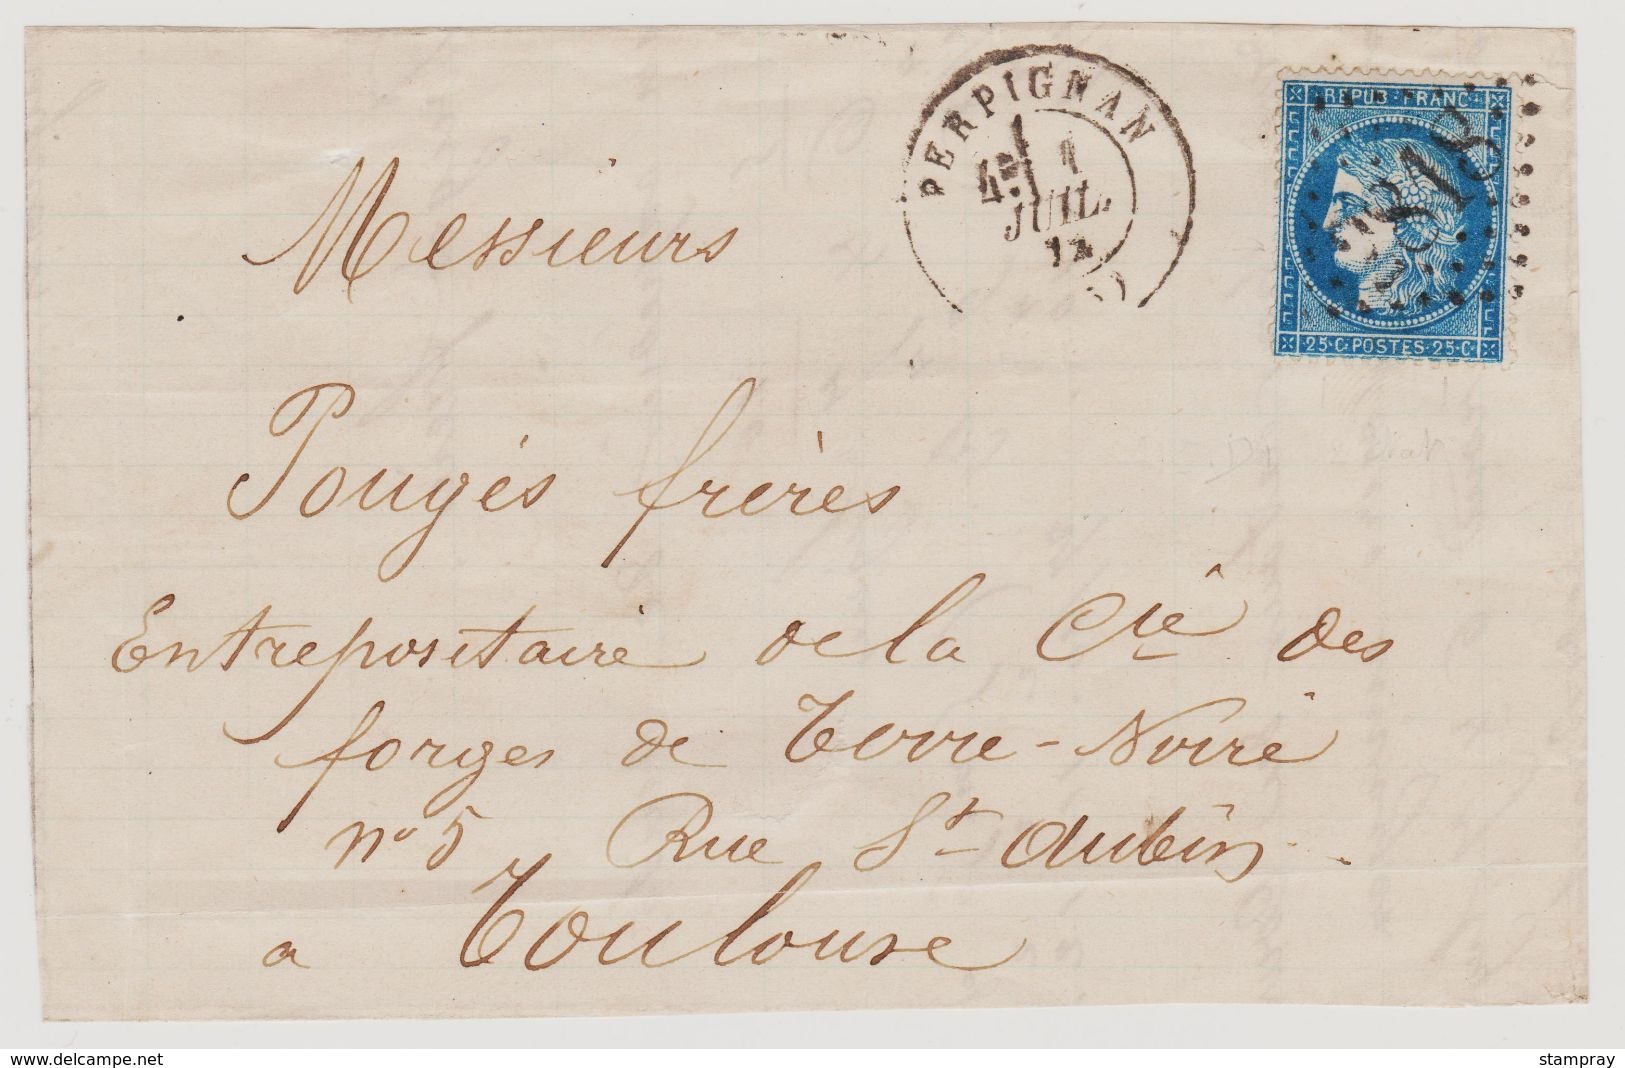 PERPIGNAN
4E 1
JUIL.
REPUB FRANC
2818
25·C·POSTES·25·C·
Messieurs
Pougès frères
Entrepositaire de la Cie des
forges de Terre-Noire
no 5 Rue St Aubin
a Toulouse
www.delcampe.net
stampray